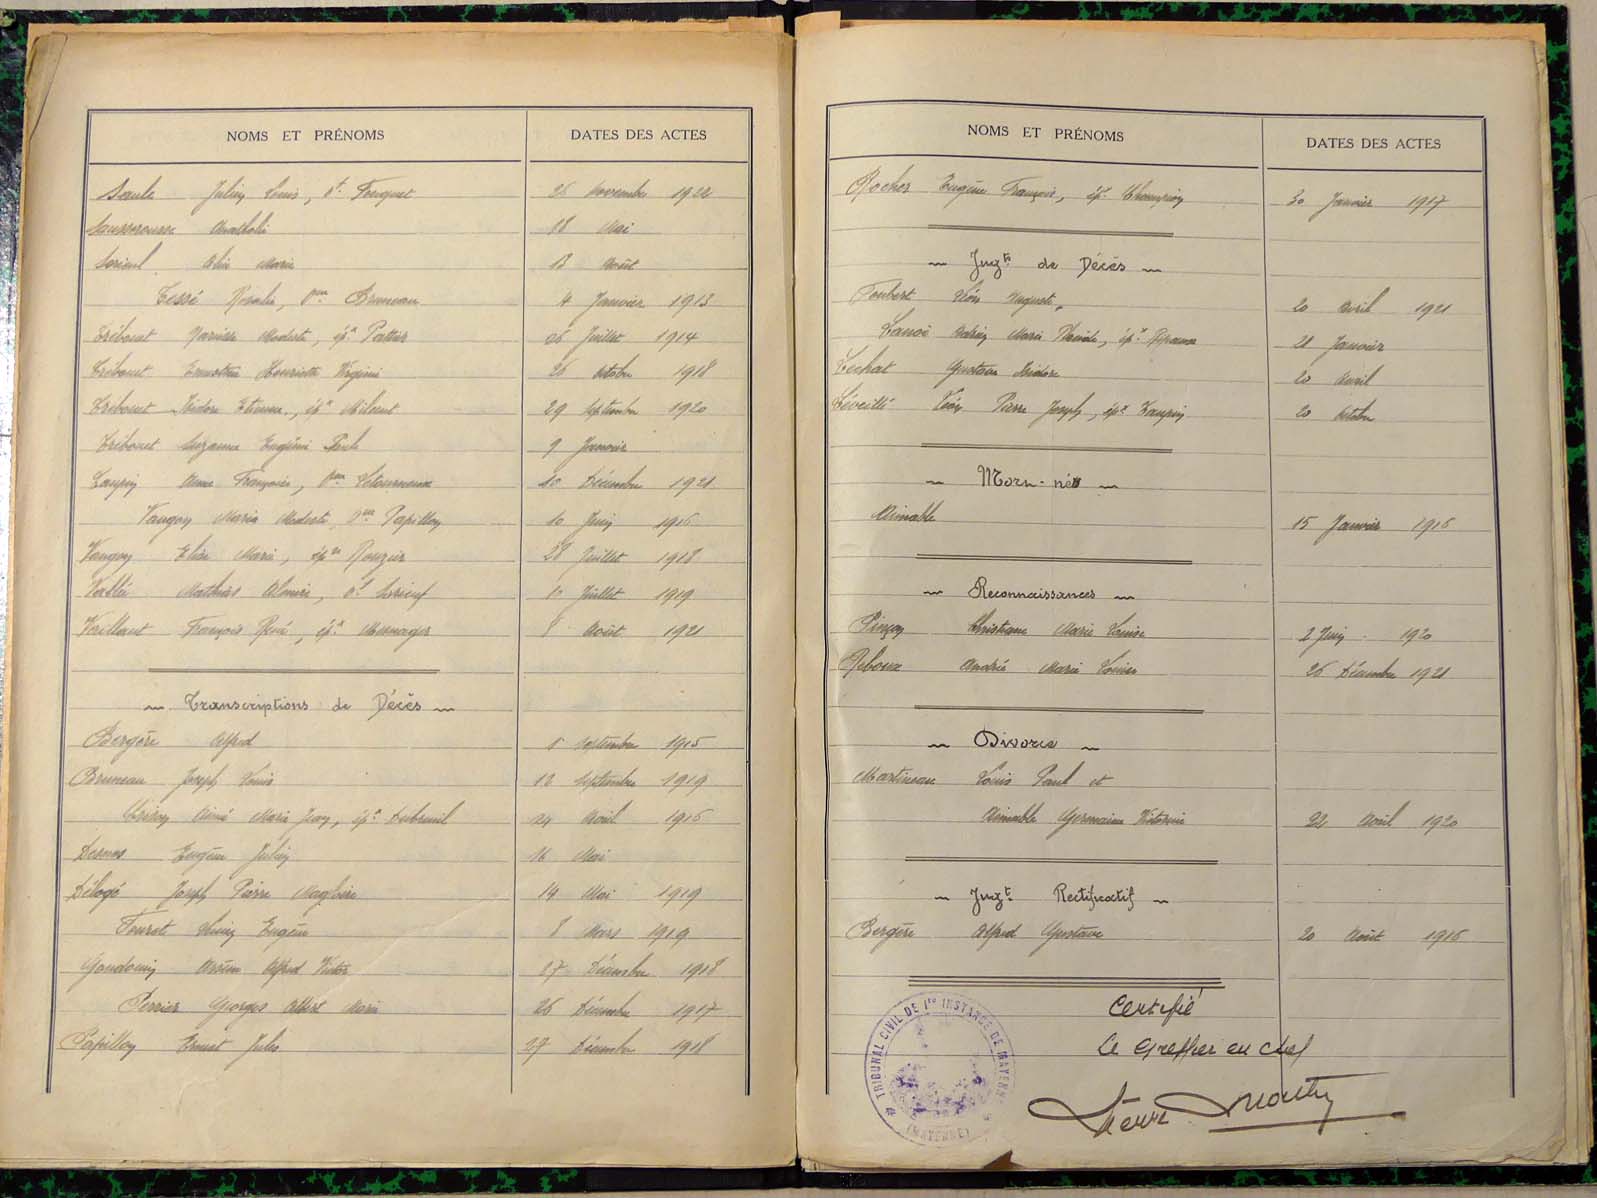 NOMS ET PRÉNOMS DATES DES ACTES
Saule Julien Louis, Vf. Fouquet 26 Novembre 1922
Anatholie 18 Mai
Marie 13 Août
Tessé Rosalie, Vve Bruneau 4 Janvier 1913
Trébouet Modeste, ép. Pottier 26 Juillet 1914
Trébouet Ernestine Henriette Virginie 26 Octobre 1918
Trébouet Isidore Etienne, ép. 29 Septembre 1920
Trébouet Suzanne Eugénie Paule 9 Janvier
Taupin Anne Françoise, Vve Létourneau 10 Décembre 1921
Vaugeoy Marie Modeste, Vve Papillon 10 Juin 1916
Vaugeoy Elise Marie, épse Rouzier 28 Juillet 1918
Vallée Mathias Almire, Vf 10 Juillet 1919
Vaillant François René, ép. Mesnager 8 Août 1921
~ Transcriptions de Décès ~
Bergère Alfred Septembre 1915
Bruneau Joseph Louis 12 Septembre 1919
Aimé Marie Jean, ép. Dubreuil 24 Avril 1916
Desnos Eugène Julien 16 Mai
Délogé Joseph Pierre Magloire 14 Mai 1919
Fouret Eugène 8 Mars 1919
Gandouin Arsène Alfred Victor 27 Décembre 1918
Perrier Georges Albert Marie 26 Décembre 1917
Papillon Ernest Jules 27 Décembre 1918
NOMS ET PRÉNOMS DATES DES ACTES
Rocher Eugène François, ép. Champion 30 Janvier 1917
~ Jugt. de Décès ~
Foubert Léon Auguste 20 Avril 1921
Lanoë Marie, ép. 21 Janvier
Lechat Gustave Isidore 20 Avril
Léveillé Léon Pierre Joseph, ép. Taupin 20 Octobre
~ Morn-nés ~
Aimable 15 Janvier 1916
~ Reconnaissances ~
Pinçon Christiane Marie Louise 2 Juin 1920
Reboux Andrée Marie Louise 26 Décembre 1921
~ Divorce ~
Martineau Louis Paul et
Aimable Germaine Victorine 22 Avril 1920
~ Jugt. Rectificatif ~
Bergère Alfred Gustave 20 Août 1916
Certifié
Le Greffier en chef
TRIBUNAL CIVIL DE 1re INSTANCE DE MAYENNE
(MAYENNE)